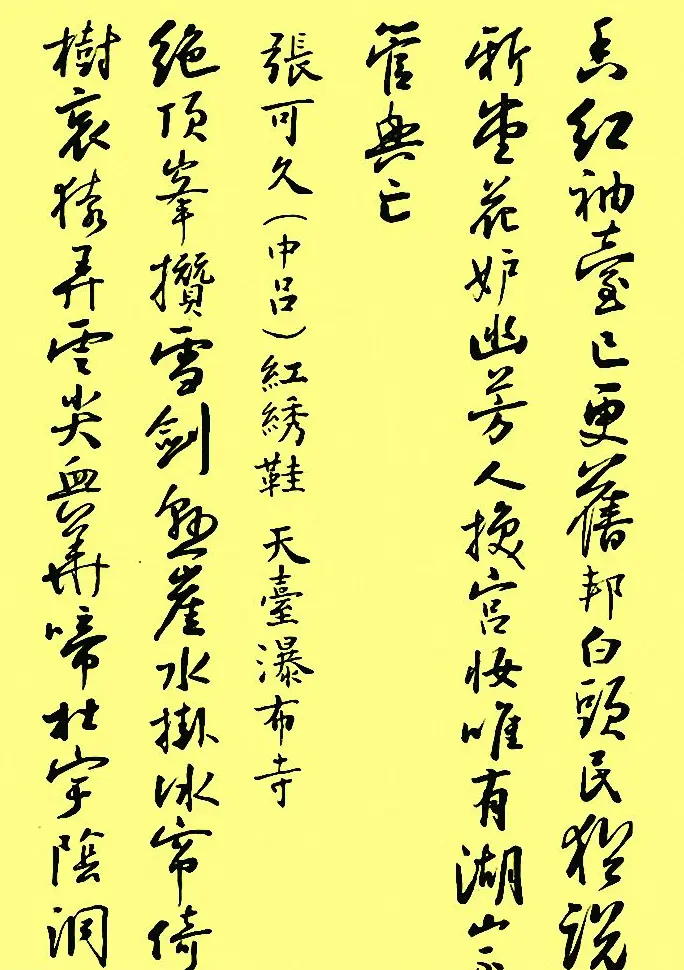 紅袖臺已更舊邦白頭民猶說
新堂花妒幽芳人換宮妝唯有湖山不
管興亡
張可久（中呂）紅綉鞋 天臺瀑布寺
絕頂峯攢雪劍懸崖水掛冰帘倚
樹哀猿弄雲尖血華啼杜宇陰洞